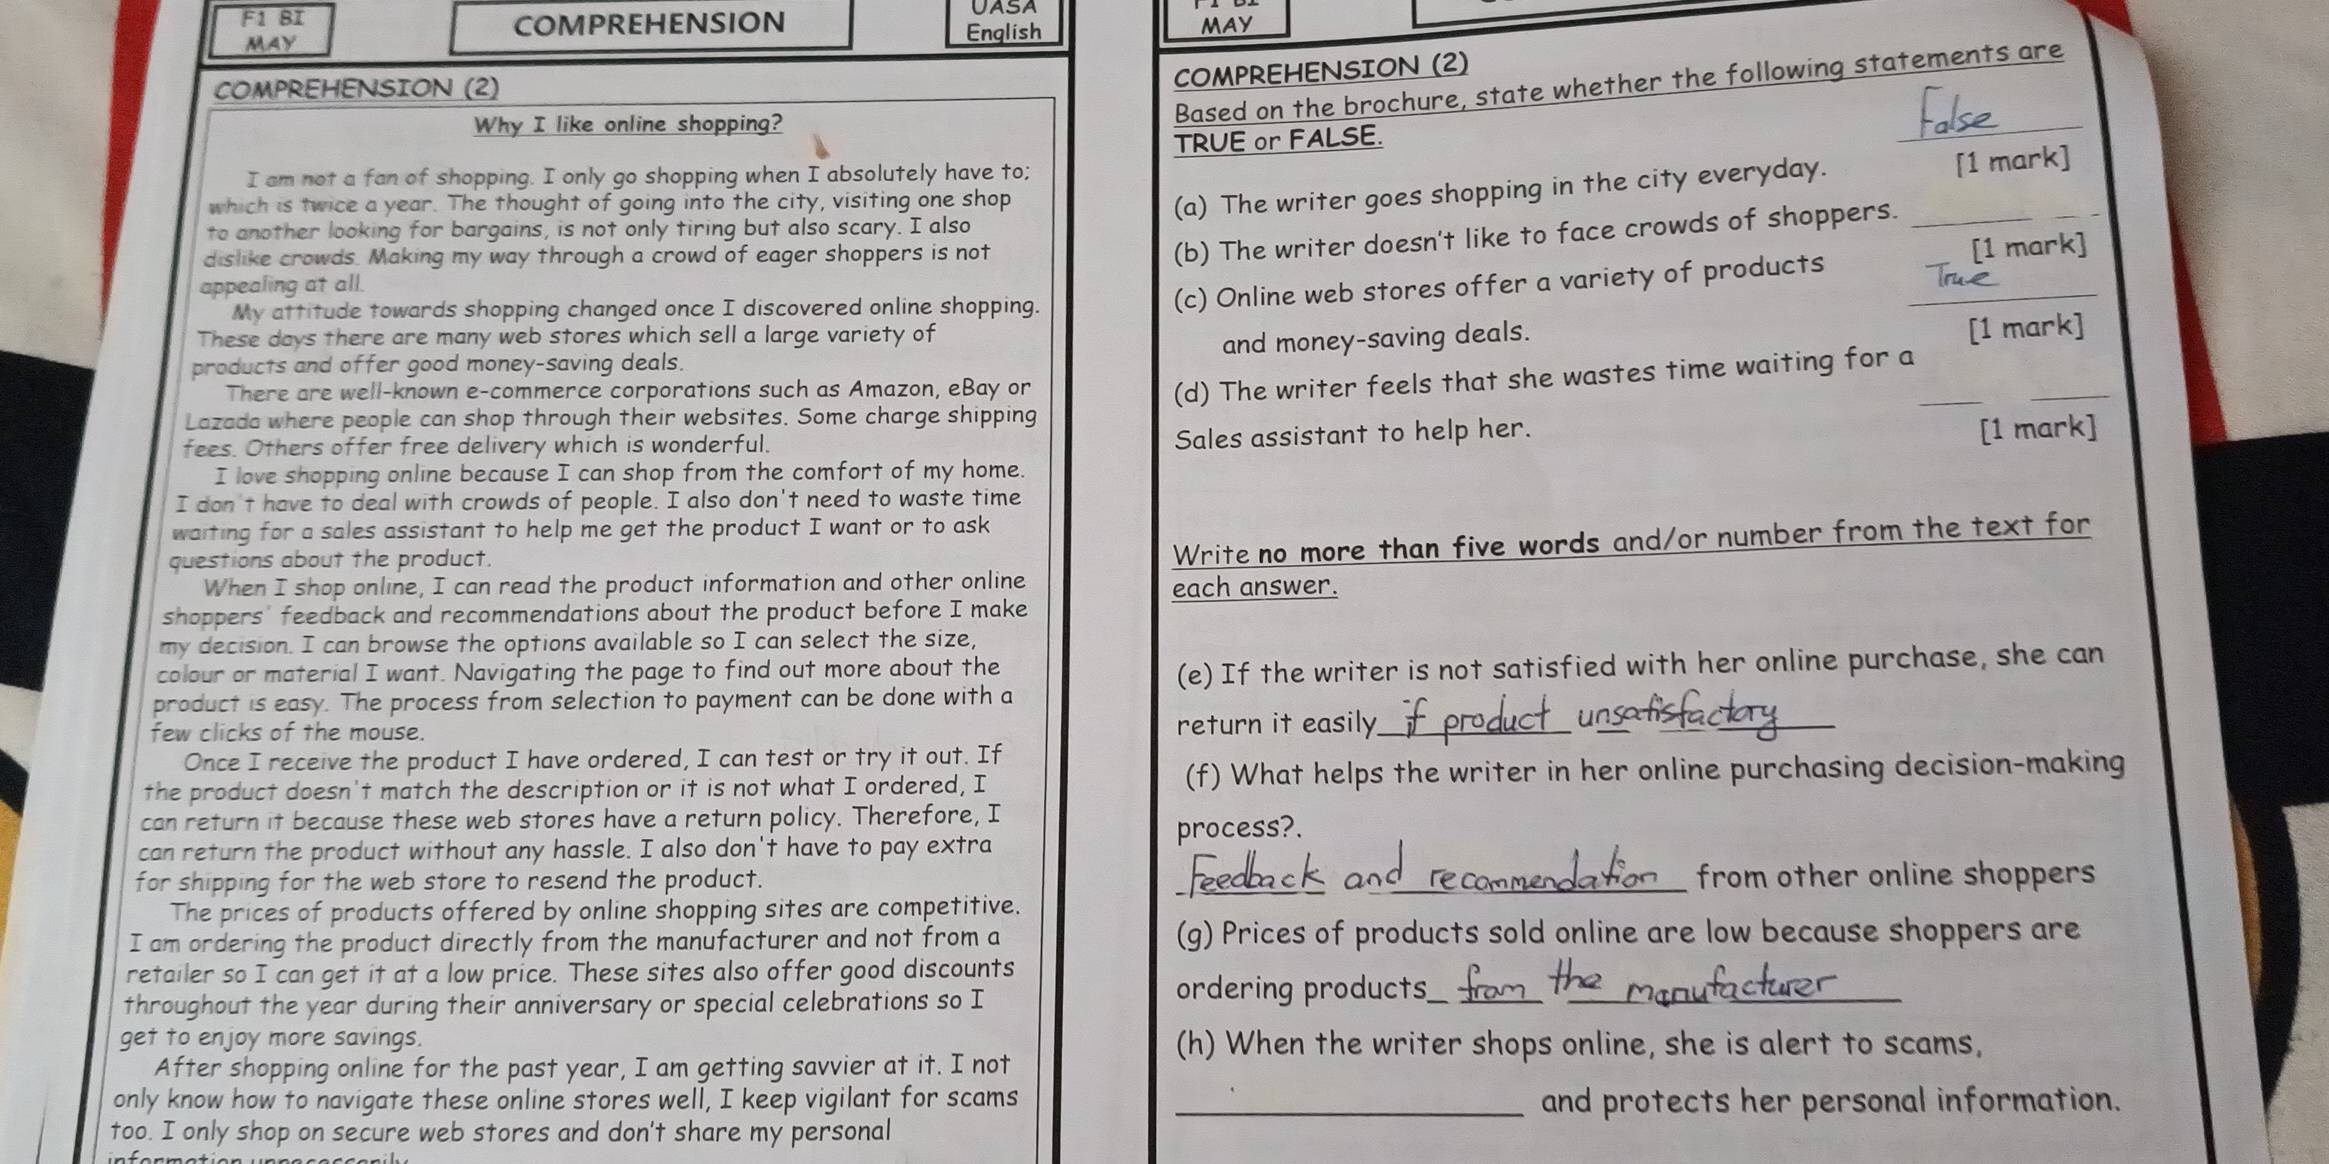 F1 BI
MAY
COMPREHENSION
UASA
English
COMPREHENSION (2)
Why I like online shopping?
I am not a fan of shopping. I only go shopping when I absolutely have to;
which is twice a year. The thought of going into the city, visiting one shop
to another looking for bargains, is not only tiring but also scary. I also
dislike crowds. Making my way through a crowd of eager shoppers is not
appealing at all.
My attitude towards shopping changed once I discovered online shopping.
These days there are many web stores which sell a large variety of
products and offer good money-saving deals.
There are well-known e-commerce corporations such as Amazon, eBay or
Lazada where people can shop through their websites. Some charge shipping
fees. Others offer free delivery which is wonderful.
I love shopping online because I can shop from the comfort of my home.
I don't have to deal with crowds of people. I also don't need to waste time
waiting for a sales assistant to help me get the product I want or to ask
questions about the product.
When I shop online, I can read the product information and other online
shoppers' feedback and recommendations about the product before I make
my decision. I can browse the options available so I can select the size,
colour or material I want. Navigating the page to find out more about the
product is easy. The process from selection to payment can be done with a
few clicks of the mouse.
Once I receive the product I have ordered, I can test or try it out. If
the product doesn't match the description or it is not what I ordered, I
can return it because these web stores have a return policy. Therefore, I
can return the product without any hassle. I also don't have to pay extra
for shipping for the web store to resend the product.
The prices of products offered by online shopping sites are competitive.
I am ordering the product directly from the manufacturer and not from a
retailer so I can get it at a low price. These sites also offer good discounts
throughout the year during their anniversary or special celebrations so I
get to enjoy more savings.
After shopping online for the past year, I am getting savvier at it. I not
only know how to navigate these online stores well, I keep vigilant for scams
too. I only shop on secure web stores and don't share my personal
MAY
COMPREHENSION (2)
Based on the brochure, state whether the following statements are
TRUE or FALSE.
False
(a) The writer goes shopping in the city everyday.
[1 mark]
(b) The writer doesn't like to face crowds of shoppers.
[1 mark]
(c) Online web stores offer a variety of products
True
and money-saving deals.
[1 mark]
(d) The writer feels that she wastes time waiting for a
Sales assistant to help her.
[1 mark]
Write no more than five words and/or number from the text for
each answer.
(e) If the writer is not satisfied with her online purchase, she can
return it easily if product unsatisfactory
(f) What helps the writer in her online purchasing decision-making
process?.
Feedback and recommendation from other online shoppers
(g) Prices of products sold online are low because shoppers are
ordering products from the manufacturer
(h) When the writer shops online, she is alert to scams,
and protects her personal information.